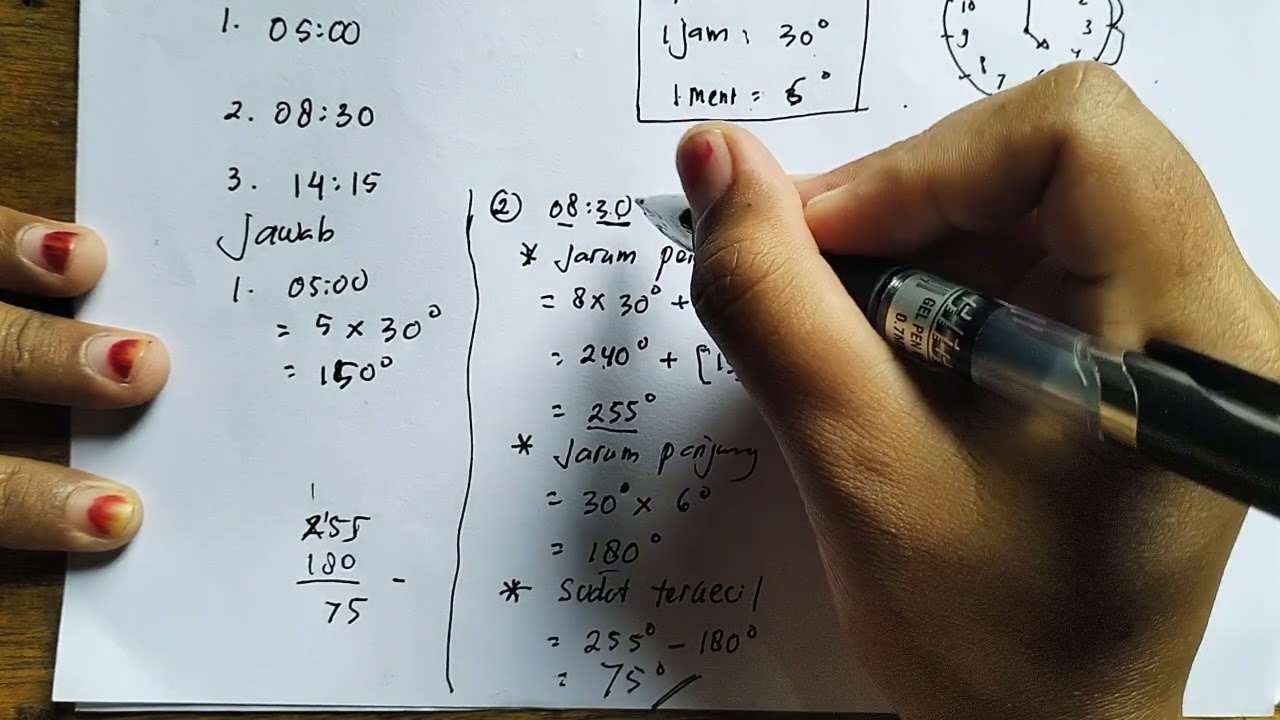 1. 05:00
2. 08:30
3. 14:15
Jawab
1. 05:00
= 5 x 30°
= 150°
1
255
180
75 -
1 jam : 30°
1 menit = 6°
10
9
8
7
2
3
4
② 08:30
* Jarum
= 8 x 30° +
= 240° + [15
= 255°
* Jarum panjang
= 30° x 6°
= 180°
* Sudut terkecil
= 255° - 180°
= 75°
GEL PEN
0.7